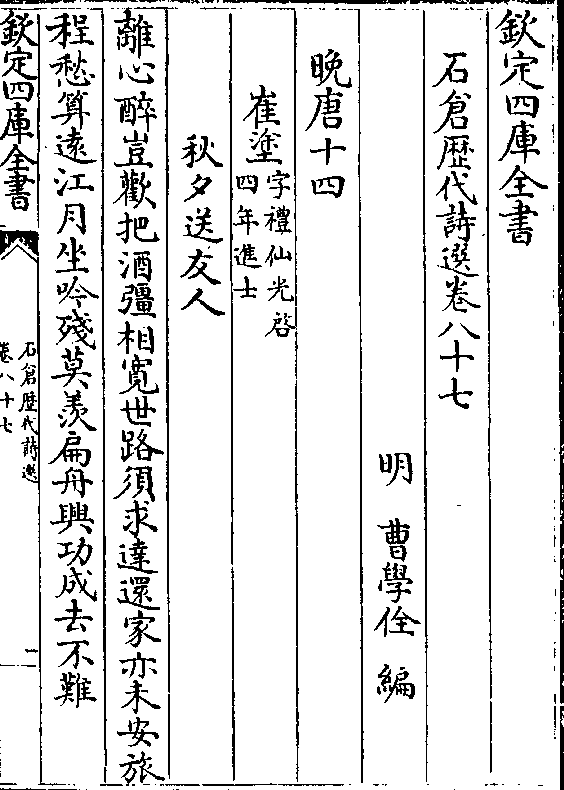 欽定四庫全書
石倉歴代詩選卷八十七
明　曹學佺　編
晩唐十四
崔塗字禮仙光啓
四年進士
秋夕送友人
離心醉豈歡把酒彊相寛世路須求達還家亦未安旅
程愁算遠江月坐吟殘莫羨扁舟興功成去不難
欽定四庫全書
石倉歴代詩選
卷八十七
一